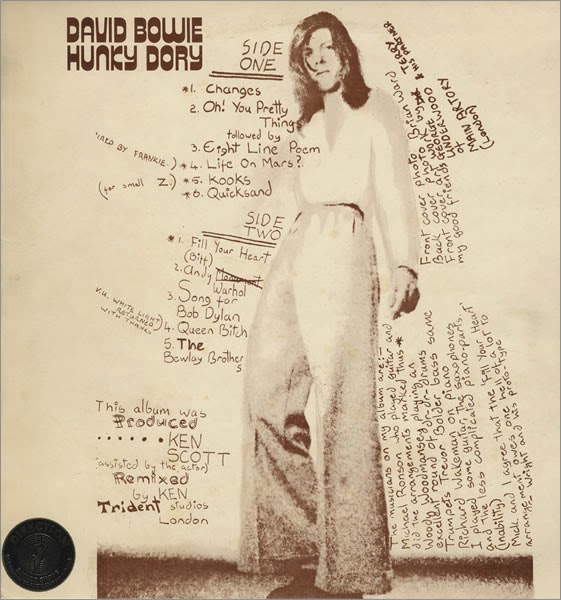 DAVID BOWIE
HUNKY DORY
SIDE
ONE
*1. Changes
2. Oh! You Pretty
Things
followed by
3. Eight Line Poem
(IRED BY FRANKIE.) *4. Life On Mars?
(for small Z.) *5. Kooks
*6. Quicksand
SIDE
TWO
*1. Fill Your Heart
(Biff)
2. Andy
Warhol
3. Song for
Bob Dylan
V.U. WHITE LIGHT
RETURNED
WITH THANKS
4. Queen Bitch
5. The
Bewlay Brothers
This album was
Produced
......KEN
SCOTT
(assisted by the actor)
Remixed
by KEN
Trident studios
London
Front cover photo. Brian Ward
Back cover photo's by
Front cover and GEORGE UNDERWOOD
my good friends
TERRY
& HIS PARTNER
of
MAIN ARTORY
(London)
The musicians on my album are:-
Michael Ronson who played guitar and
did the arrangements marked thus *
Woody Woodmansey playing an
excellent round of dr-dr-drums
Trumpets Trevor Bolder bass same
Richard Wakeman on piano
I played some guitar, the saxophones
and the less complicated piano-parts.
(inability) I agree that the 'Fill Your Heart'
arrangement owes one hell of a lot to
Mick and I
Wright and his proto-type